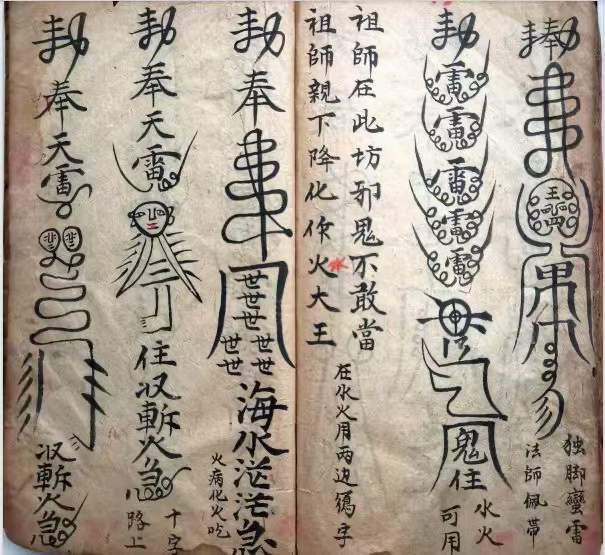 勅
王
独脚蠻雷
法師佩帶
勅
雷雷雷雷雷
鬼住
水火
可用
祖師在此坊邪鬼不敢當
在水火用兩边字
祖師親下降化作火大王
水
勅奉
世世世世世世世世世
海水茫茫急
火病化火吃
勅奉天雷
住収斬火急
十字
路上
勅奉天雷
収斬火急